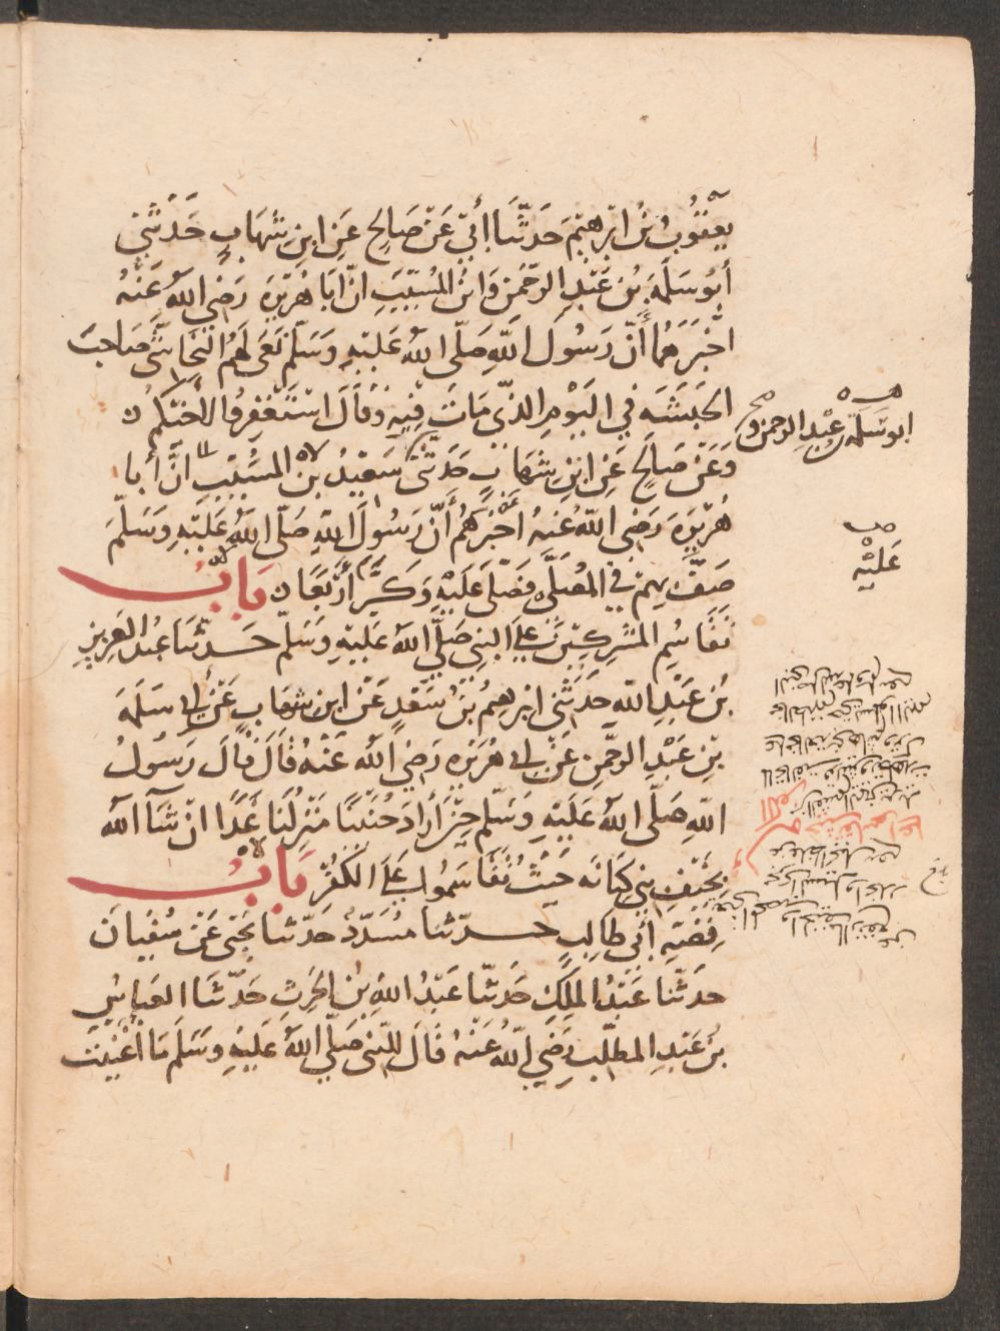 يَعْقُوبُ بْنُ ابْرٰهِيمَ حَدَّثَنَا أَبِي عَنْ صَالِحٍ عَنِ ابْنِ شِهَابٍ حَدَّثَنِي
أَبُو سَلَمَةَ بْنُ عَبْدِ الرَّحْمٰنِ وَابْنُ الْمُسَيَّبِ انَّ ابَا هُرَيْرَةَ رَضِيَ اللهُ عَنْهُ
اخْبَرَهُمَا أَنَّ رَسُولَ اللهِ صَلَّى اللهُ عَلَيْهِ وَسَلَّمَ نَعَى لَهُمُ النَّجَاشِيَّ صَاحِبَ
الحَبَشَه فِي الْيَوْمِ الَّذِي مَاتَ فِيهِ وَقَالَ اسْتَغْفِرُوا لِأَخِيكُمْ ن
ابو سَلَمَةَ بْنُ عَبْدِ الرحمن و
وَعَنْ صَالِحٍ عَنِ ابْنِ شِهَابٍ حَدَّثَنِي سَعِيدُ بْنُ الْمُسَيَّبِ انَّ أبا
هُرَيْرَةَ رَضِيَ اللهُ عَنْهُ اخْبَرَهُمْ أَنَّ رَسُولَ اللهِ صَلَّى اللهُ عَلَيْهِ وَسَلَّمَ
عَلَيْهِ
صَفَّ بِهِمْ فِي الْمُصَلَّى فَصَلَّى عَلَيْهِ وَكَبَّرَ أَرْبَعًا ن بَابُ
تَقَاسُمِ الْمُشْرِكِينَ عَلَى النبي صَلَّى اللهُ عَلَيْهِ وَسَلَّمَ حَدَّثَنَا عَبْدُ الْعَزِيزِ
بْنُ عَبْدِ الله حَدَثَنِي ابْرٰهِيمُ بْنُ سَعْدٍ عَنِ ابْنِ شِهَابٍ عَنْ أَبِي سَلَمَةَ
بْنِ عَبْدِ الرحْمٰنِ عَنْ أَبِي هُرَيْرَةَ رَضِيَ اللهُ عَنْهُ قَالَ قَالَ رَسُولُ
اللهِ صَلَّى اللهُ عَلَيْهِ وَسَلَّمَ حِينَ أَرَادَ حُنَيْنًا مَنْزِلُنَا غَدًا انْ شَآءَ اللهُ
بِخَيْفِ بَنِي كِنَانَه حَيْثُ تَقَاسَمُوا عَلَى الْكُفْرِ بَابُ
قِصَّةِ أَبِي طَالِبٍ حَدَّثنا مُسَدَّدٌ حَدَّثنا يَحْيَى عَنْ سُفْيَانَ
حَدثنَا عَبْدُ الْمَلِكِ حَدَثنَا عَبْدُ اللهِ بْنُ الحٰرِثِ حَدَّثَنَا العَبَاسُ
بْنُ عَبْدِ المطلِب رَضِيَ اللهُ عَنْهُ قَالَ لِلنَّبِي صَلَّى اللهُ عَلَيْهِ وَسَلَمَ مَا أَغْنَيْتَ